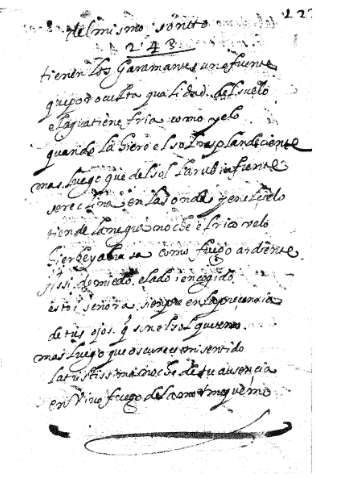 del mismo soneto
243
tienen los Garamantes una fuente
que por oculta qualidad del suelo
el agua tiene fria como yelo
quando la hiere el sol resplandeciente
mas luego que del sol la rubia frente
se reclina en las ondas
tiende la negra noche el rico velo
yerbe y abrasa como fuego ardiente
Assi de miedo elado i encogido
estoi señora siempre en la presencia
de tus ojos q son el sol que venero
mas luego que oscurece mi sentido
la tristissima noche de tu ausencia
en vivo fuego de amor me quemo